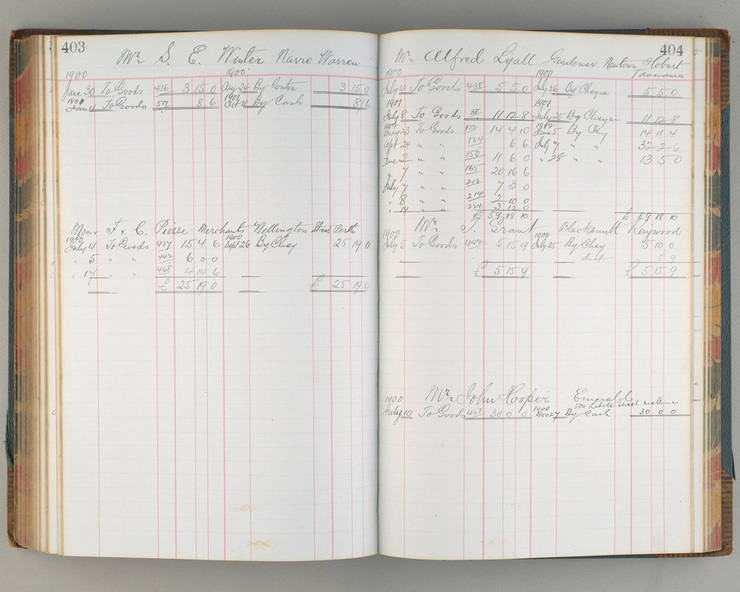 403
Mr S. E. Winter Narre Warren
1900 1900
June 30 To Goods 436 3 15 0 Aug 24 By Contra 3 15 0
1901 Jan 4 To Goods 57 8 6 1901 Oct 4 By Cash 8/6
Messrs F & C. Piesse Merchants Wellington Street Perth
1900 July 4 To Goods 437 15 4 6 1900 Sept 26 By Cheq 25 19 0
" 5 442 6 0 0
" 17 468 4 14 6
£ 25 19 0 £ 25 19 0
404
Mr Alfred Lyall Gardener Newtown Hobart
Tasmania
1900 1900
July 4 To Goods 435 5 5 0 July 26 By Cheque 5 5 0
1901 1901
July 8 To Goods 11 12 8 July 25 By Cheque 11 12 8
23 To Goods 14 4 10 5 By Chq 14 11 4
24 " " 6 6 July 4 " " 32 2 6
2 " " 150 11 6 0 " 28 " " 13 5 0
7 " " 165 20 16 6
July 4 " " 212 7 3 0
" 8 " " 214 2 10 0
" 14 " " 224 3 12 0
£ 59 18 10 £ 59 18 10
Mr J. Grant Blacksmith Longwood
1900 July 5 To Goods 5 15 9 1900 July 25 By Cheq 5 10 0
dist 5 9
£ 5 15 9 £ 5 15 9
Mr John Hooper Emerald
1900 July 10 To Goods 451 30 0 0 1900 By Cash 30 0 0